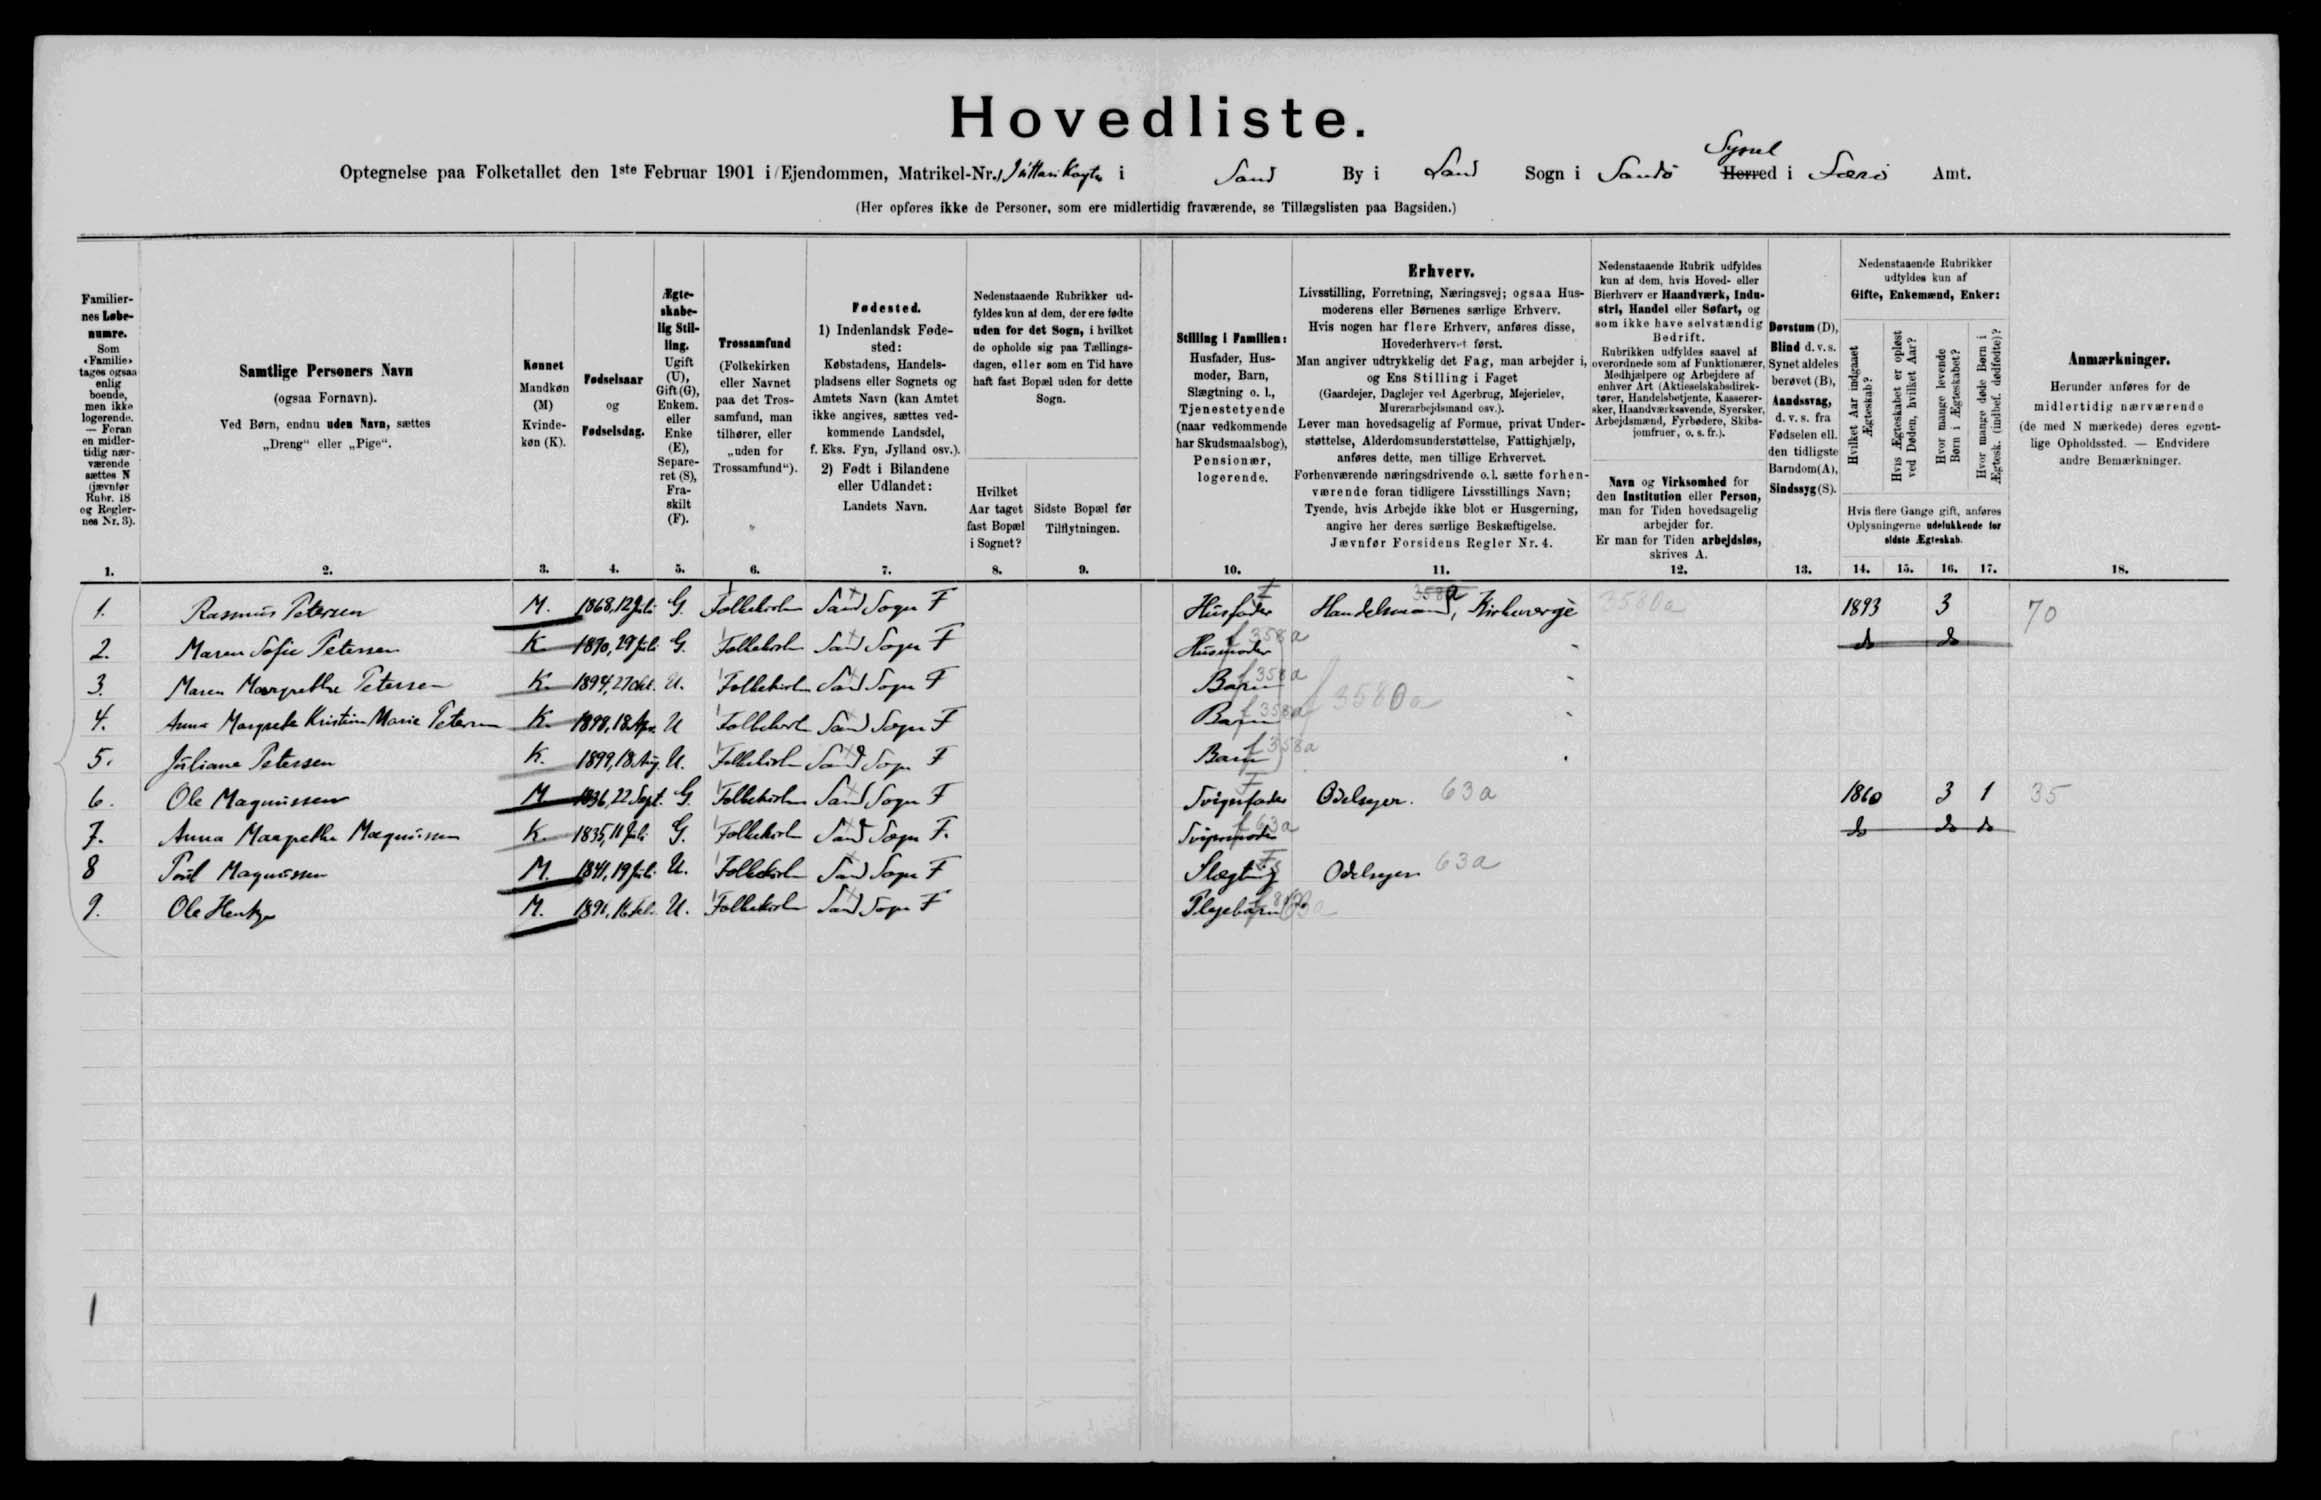 Hovedliste.
Optegnelse paa Folketallet den 1ste Februar 1901 i Ejendommen, Matrikel-Nr. i Sand By i Sand Sogn i Sandö Herred Sysel i Færö Amt.
(Her opføres ikke de Personer, som ere midlertidig fraværende, se Tillægslisten paa Bagsiden.)
Familiernes Løbenumre.
Som «Familie» tages ogsaa enlig boende, men ikke logerende. — Foran en midlertidig nærværende sættes N (jævnfør Rubr. 18 og Reglernes Nr. 3).
Samtlige Personers Navn
(ogsaa Fornavn).
Ved Børn, endnu uden Navn, sættes
„Dreng“ eller „Pige“.
Kønnet
Mandkøn (M)
Kvindekøn (K).
Fødselsaar
og
Fødselsdag.
Ægteskabelig Stilling.
Ugift (U), Gift (G), Enkem. eller Enke (E), Separeret (S), Fraskilt (F).
Trossamfund
(Folkekirken eller Navnet paa det Trossamfund, man tilhører, eller „uden for Trossamfund“).
Fødested.
1) Indenlandsk Fødested:
Købstadens, Handelspladsens eller Sognets og Amtets Navn (kan Amtet ikke angives, sættes vedkommende Landsdel, f. Eks. Fyn, Jylland osv.).
2) Født i Bilandene eller Udlandet:
Landets Navn.
Nedenstaaende Rubrikker udfyldes kun af dem, der ere fødte uden for det Sogn, i hvilket de opholde sig paa Tællingsdagen, eller som en Tid have haft fast Bopæl uden for dette Sogn.
Hvilket Aar taget fast Bopæl i Sognet?
Sidste Bopæl før Tilflytningen.
Stilling i Familien:
Husfader, Husmoder, Barn, Slægtning o. l., Tjenestetyende (naar vedkommende har Skudsmaalsbog), Pensionær, logerende.
Erhverv.
Livsstilling, Forretning, Næringsvej; ogsaa Husmoderens eller Børnenes særlige Erhverv.
Hvis nogen har flere Erhverv, anføres disse, Hovederhvervet først.
Man angiver udtrykkelig det Fag, man arbejder i, og Ens Stilling i Faget
(Gaardejer, Daglejer ved Agerbrug, Mejerielev, Murerarbejdsmand osv.).
Lever man hovedsagelig af Formue, privat Understøttelse, Alderdomsunderstøttelse, Fattighjælp, anføres dette, men tillige Erhvervet.
Forhenværende næringsdrivende o. l. sætte forhenværende foran tidligere Livsstillings Navn;
Tyende, hvis Arbejde ikke blot er Husgerning, angive her deres særlige Beskæftigelse.
Jævnfør Forsidens Regler Nr. 4.
Nedenstaaende Rubrik udfyldes kun af dem, hvis Hoved- eller Bierhverv er Haandværk, Industri, Handel eller Søfart, og som ikke have selvstændig Bedrift.
Rubrikken udfyldes saavel af overordnede som af Funktionærer, Medhjælpere og Arbejdere af enhver Art (Aktieselskabsdirektører, Handelsbetjente, Kasserersker, Haandværkssvende, Syersker, Arbejdsmænd, Fyrbødere, Skibsjomfruer, o. s. fr.).
Navn og Virksomhed for den Institution eller Person, man for Tiden hovedsagelig arbejder for.
Er man for Tiden arbejdsløs, skrives A.
Døvstum (D), Blind d. v. s. Synet aldeles berøvet (B), Aandssvag, d. v. s. fra Fødselen ell. den tidligste Barndom (A), Sindssyg (S).
Nedenstaaende Rubrikker udfyldes kun af Gifte, Enkemænd, Enker:
Hvilket Aar indgaaet Ægteskab?
Hvis Ægteskabet er opløst ved Døden, hvilket Aar?
Hvor mange levende Børn i Ægteskabet?
Hvor mange døde Børn i Ægtesk. (indbef. dødfødte)?
Hvis flere Gange gift, anføres Oplysningerne udelukkende for sidste Ægteskab.
Anmærkninger.
Herunder anføres for de midlertidig nærværende (de med N mærkede) deres egentlige Opholdssted. — Endvidere andre Bemærkninger.
1. 2. 3. 4. 5. 6. 7. 8. 9. 10. 11. 12. 13. 14. 15. 16. 17. 18.
1. Rasmus Petersen M. 1868, 12 Juli G. Folkekirken Sand Sogn F Husfader F Handelsmand, Kirkeværge 358a 3580a 1893 3 70
2. Maren Sofie Petersen K. 1870, 29 Juli G. Folkekirken Sand Sogn F Husmoder f 358a do do
3. Maren Margrethe Petersen K. 1894, 27 Okt. U. Folkekirken Sand Sogn F Barn f 358a 3580a
4. Anna Margrete Kristine Marie Petersen K. 1898, 18 Apr. U Folkekirken Sand Sogn F Barn f 358a
5. Juliane Petersen K. 1899, 18 Aug. U. Folkekirken Sand Sogn F Barn f 358a
6. Ole Magnussen M 1836, 22 Sept. G. Folkekirken Sand Sogn F Svigerfader F Odelsejer. 63a 1860 3 1 35
7. Anna Margrethe Magnussen K. 1835, 11 Juli G. Folkekirken Sand Sogn F. Svigermoder f 63a do do do
8 Poul Magnussen M. 1841, 19 Juli U. Folkekirken Sand Sogn F Slægtning F Odelsejer 63a
9. Ole M. 1891, 16 U. Folkekirken Sand Sogn F Plejebarn 63a
1